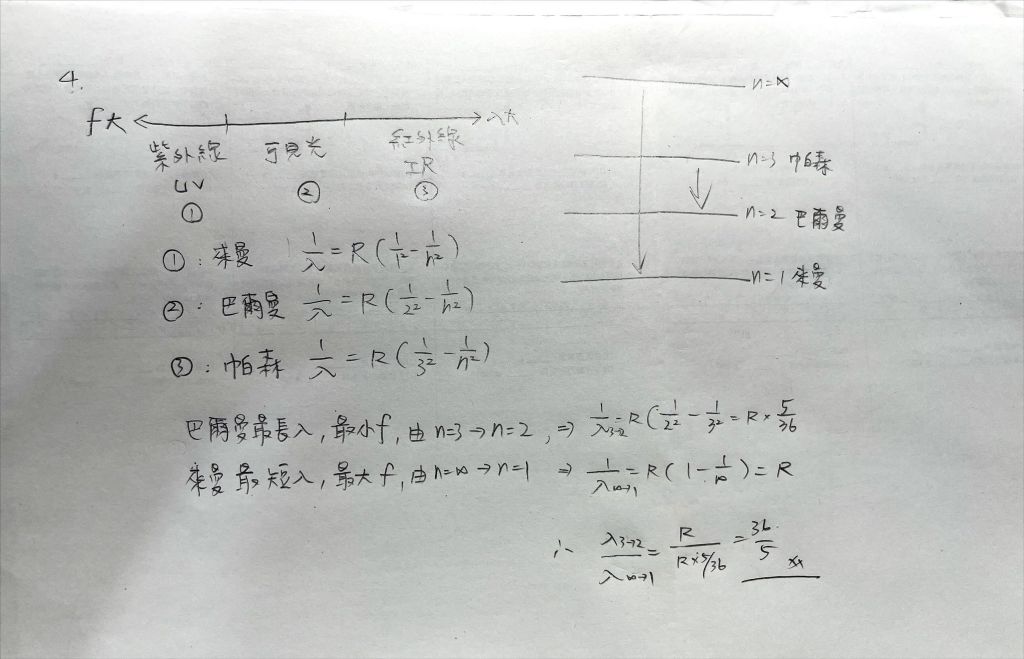 4.
f大 λ大
紫外線 可見光 紅外線
UV IR
① ② ③
n=∞
n=3 帕森
n=2 巴爾曼
n=1 來曼
①：來曼 1/λ = R(1/1² - 1/n²)
②：巴爾曼 1/λ = R(1/2² - 1/n²)
③：帕森 1/λ = R(1/3² - 1/n²)
巴爾曼最長λ, 最小f, 由n=3→n=2, ⇒ 1/λ3→2 = R(1/2² - 1/3² = R × 5/36
來曼最短λ, 最大f, 由n=∞→n=1 ⇒ 1/λ∞→1 = R(1 - 1/∞) = R
∴ λ3→2/λ∞→1 = R/(R×5/36) = 36/5